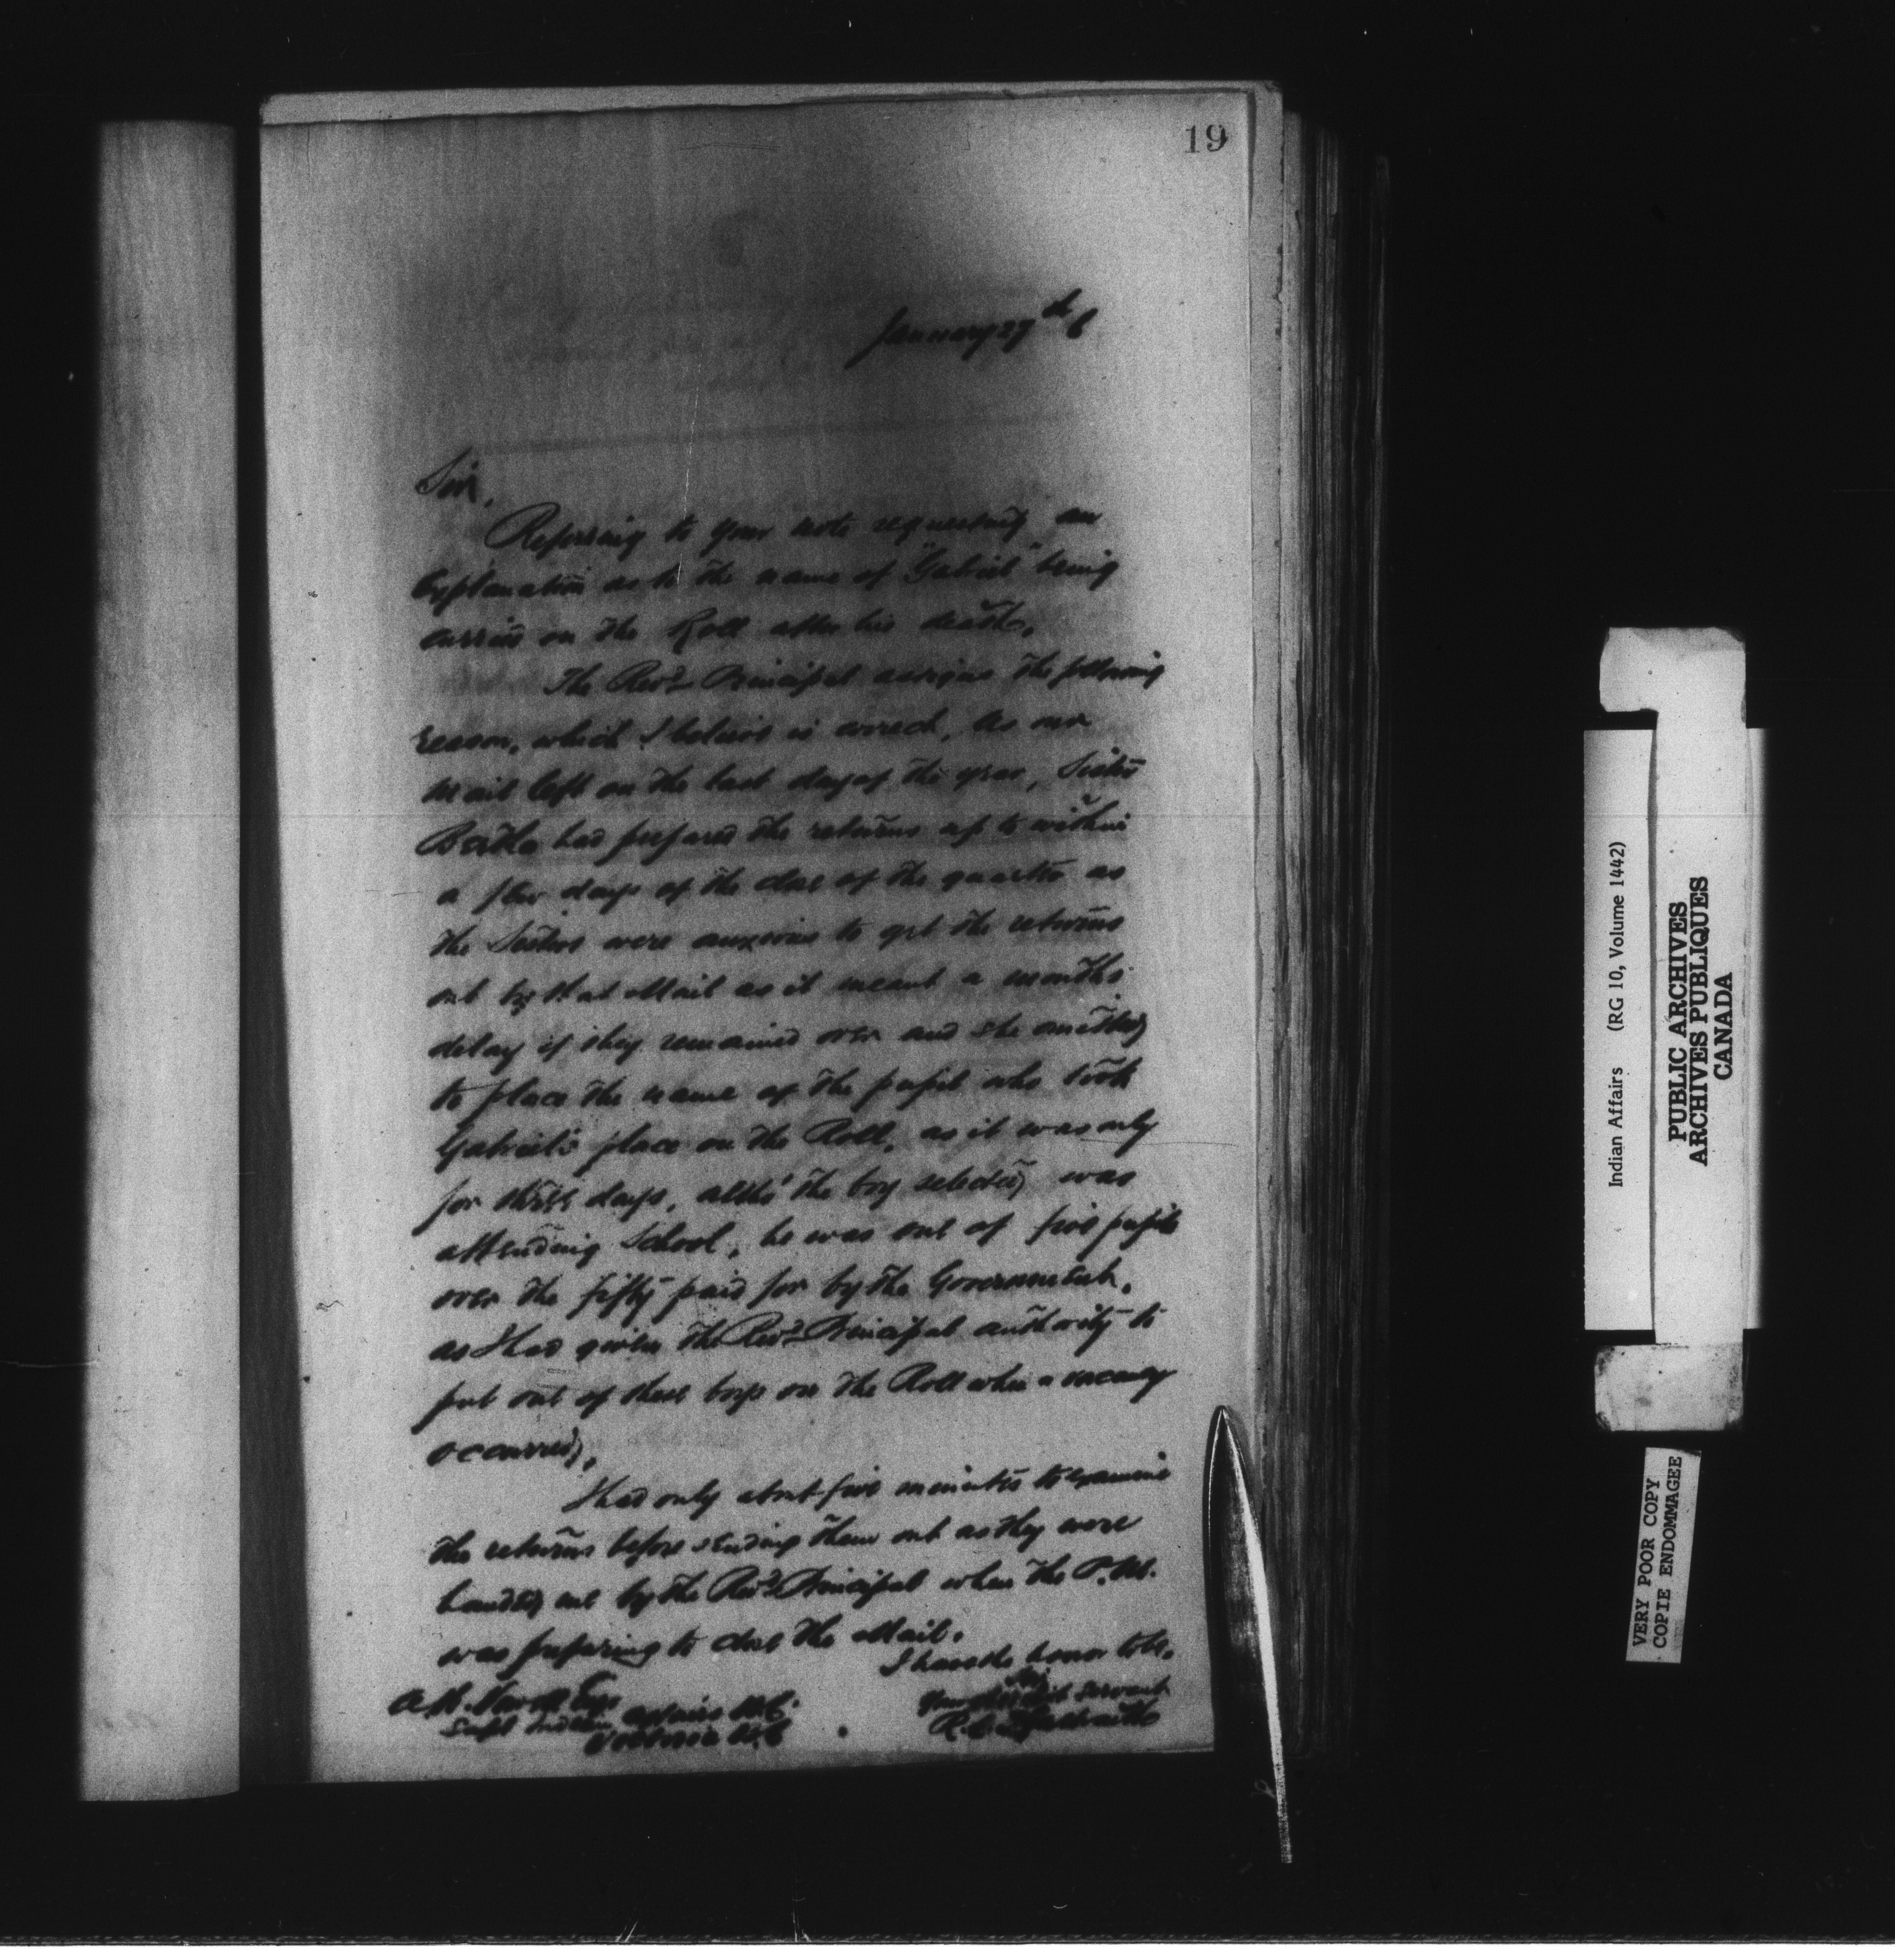 19
January 27th 6
Sir,
Referring to your note requesting an
Explanation as to the name of "Gabriel" being
carried on the Roll after his death.
The Revd Principal assigns the following
reason, which I believe is correct, as our
Mail left on the last day of the year, Sister
Bertha had prepared the returns up to within
a few days of the close of the quarter as
the Sisters were anxious to get the returns
out by that Mail as it meant a months
delay if they remained over and she omitted
to place the name of the pupil who took
Gabriel's place on the Roll, as it was only
for three days, altho' the boy selected was
attending School, he was one of five pupils
over the fifty paid for by the Government,
as I had given the Revd Principal authority to
put one of these boys on the Roll when a vacancy
occurred,
I had only about five minutes to examine
the returns before sending them out as they were
handed me by the Revd Principal when the P.M.
was preparing to close the Mail.
I have the honor to be,
Sir
Your obedient servant
R.L.T. Galbraith
A.W. Vowell Esqr
Supt Indian Affairs B.C.
Victoria B.C
Indian Affairs (RG 10, Volume 1442)
PUBLIC ARCHIVES
ARCHIVES PUBLIQUES
CANADA
VERY POOR COPY
COPIE ENDOMMAGEE